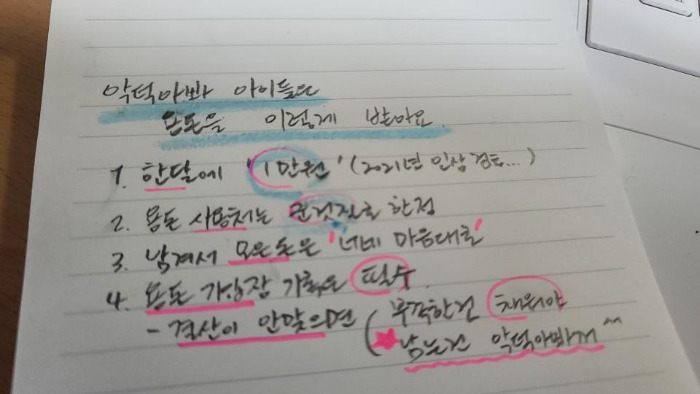 악덕아빠 아이들은
용돈을 이렇게 받아요.
1. 한달에 '1만원' (2021년 인상 검토...)
2. 용돈 사용처는 군것질로 한정
3. 남겨서 모은돈은 '너네 마음대로'
4. 용돈 가장 기록은 필수
- 결산이 안맞으면 ( 부족한건 채워야
★ 남는건 악덕아빠거 ^^